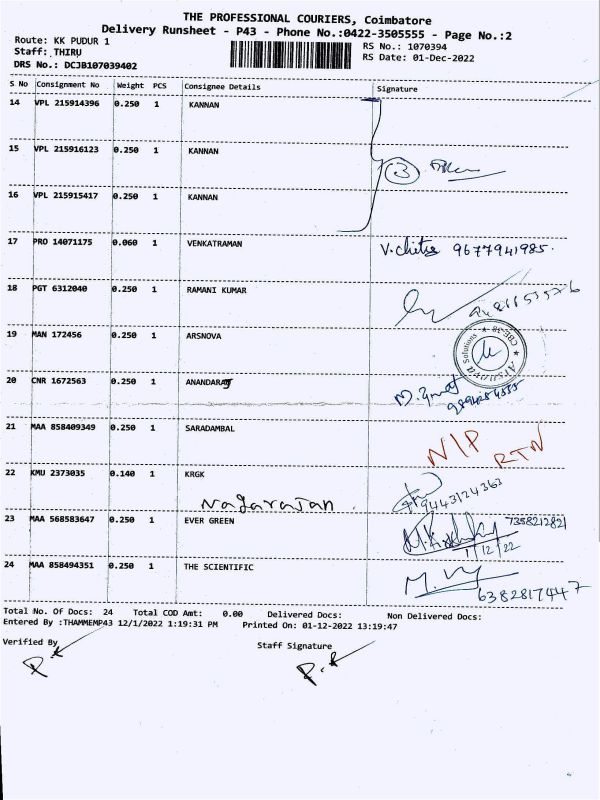 THE PROFESSIONAL COURIERS, Coimbatore
Delivery Runsheet - P43 - Phone No.:0422-3505555 - Page No.:2
Route: KK PUDUR 1
RS No.: 1070394
Staff: THIRU
RS Date: 01-Dec-2022
DRS No.: DCJB107039402
S No Consignment No Weight PCS Consignee Details Signature
14 VPL 215914396 0.250 1 KANNAN
15 VPL 215916123 0.250 1 KANNAN
3
16 VPL 215915417 0.250 1 KANNAN
17 PRO 14071175 0.060 1 VENKATRAMAN V.chitra 9677941985.
18 PGT 6312040 0.250 1 RAMANI KUMAR
19 MAN 172456 0.250 1 ARSNOVA
Arsnova Solutions ★ CBE-38 ★
20 CNR 1672563 0.250 1 ANANDARAJ
21 MAA 858409349 0.250 1 SARADAMBAL N/P RTN
22 KMU 2373035 0.140 1 KRGK
Nagarajan. 9443124363
23 MAA 568583647 0.250 1 EVER GREEN 7358212821
1/12/22
24 MAA 858494351 0.250 1 THE SCIENTIFIC
6382817447
Total No. Of Docs: 24 Total COD Amt: 0.00 Delivered Docs: Non Delivered Docs:
Entered By :THAMMEMP43 12/1/2022 1:19:31 PM Printed On: 01-12-2022 13:19:47
Verified By
Staff Signature